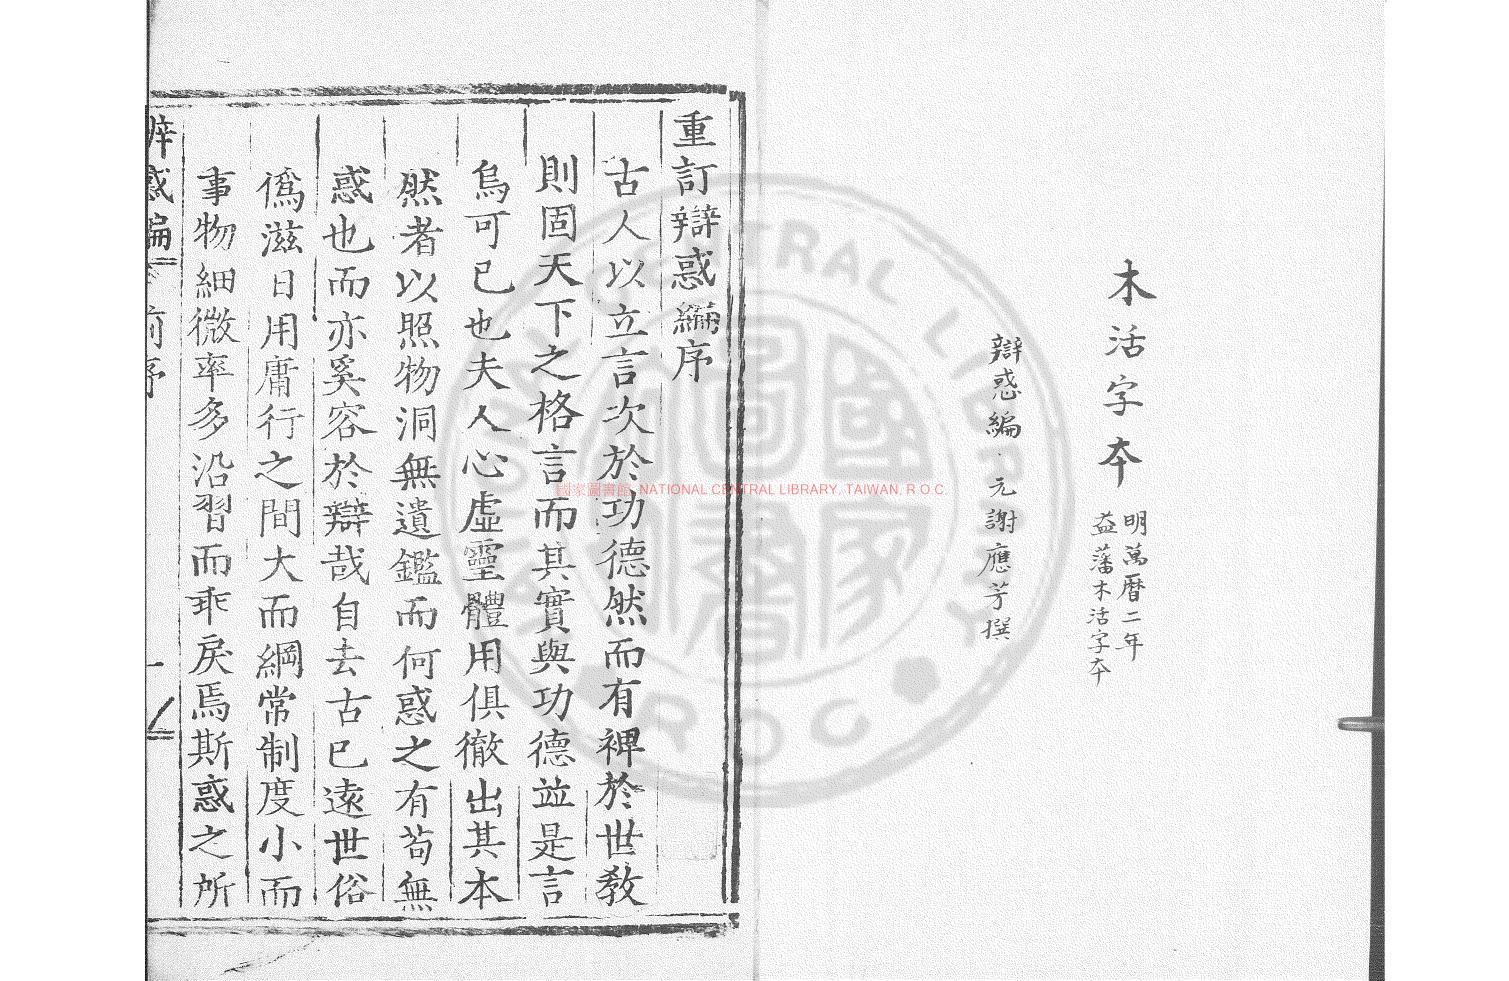 木活字本
明萬曆二年
益藩木活字本
辯惑編 元謝應芳撰
重訂辯惑編序
古人以立言次於功德然而有裨於世敎
則固天下之格言而其實與功德並是言
烏可已也夫人心虛靈體用俱徹出其本
然者以照物洞無遺鑑而何惑之有茍無
惑也而亦奚容於辯哉自去古已遠世俗
僞滋日用庸行之間大而綱常制度小而
事物細微率多沿習而乖戾焉斯惑之所
惑編
前序
一
國家圖書館 NATIONAL CENTRAL LIBRARY, TAIWAN, R.O.C.
NATIONAL CENTRAL LIBRARY
ROC
國家圖書